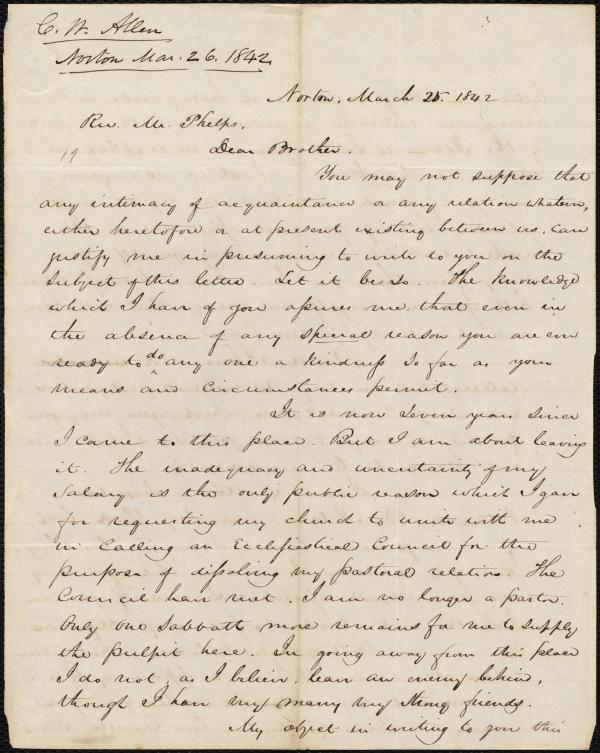 C. W. Allen
Norton Mar. 26. 1842
Norton, March 25. 1842
Rev. Mr. Phelps,
19
Dear Brother.
You may not suppose that
any intimacy of acquaintance or any relation whatever,
either heretofore or at present existing between us, can
justify me in presuming to write to you on the
subject of this letter. Let it be so. The knowledge
which I have of you assures me, that even in
the absence of any special reason you are ever
ready to do any one a kindness so far as your
means and circumstances permit.
It is now seven years since
I came to this place. But I am about leaving
it. The inadequacy and uncertainty of my
salary is the only public reason which I gave
for requesting my church to unite with me
in calling an Ecclesiastical Council for the
purpose of dissolving my pastoral relation. The
Council have met. I am no longer a pastor.
Only one Sabbath more remains for me to supply
the pulpit here. In going away from this place
I do not, as I believe, leave an enemy behind,
though I have my many my strong friends.
My object in writing to you this